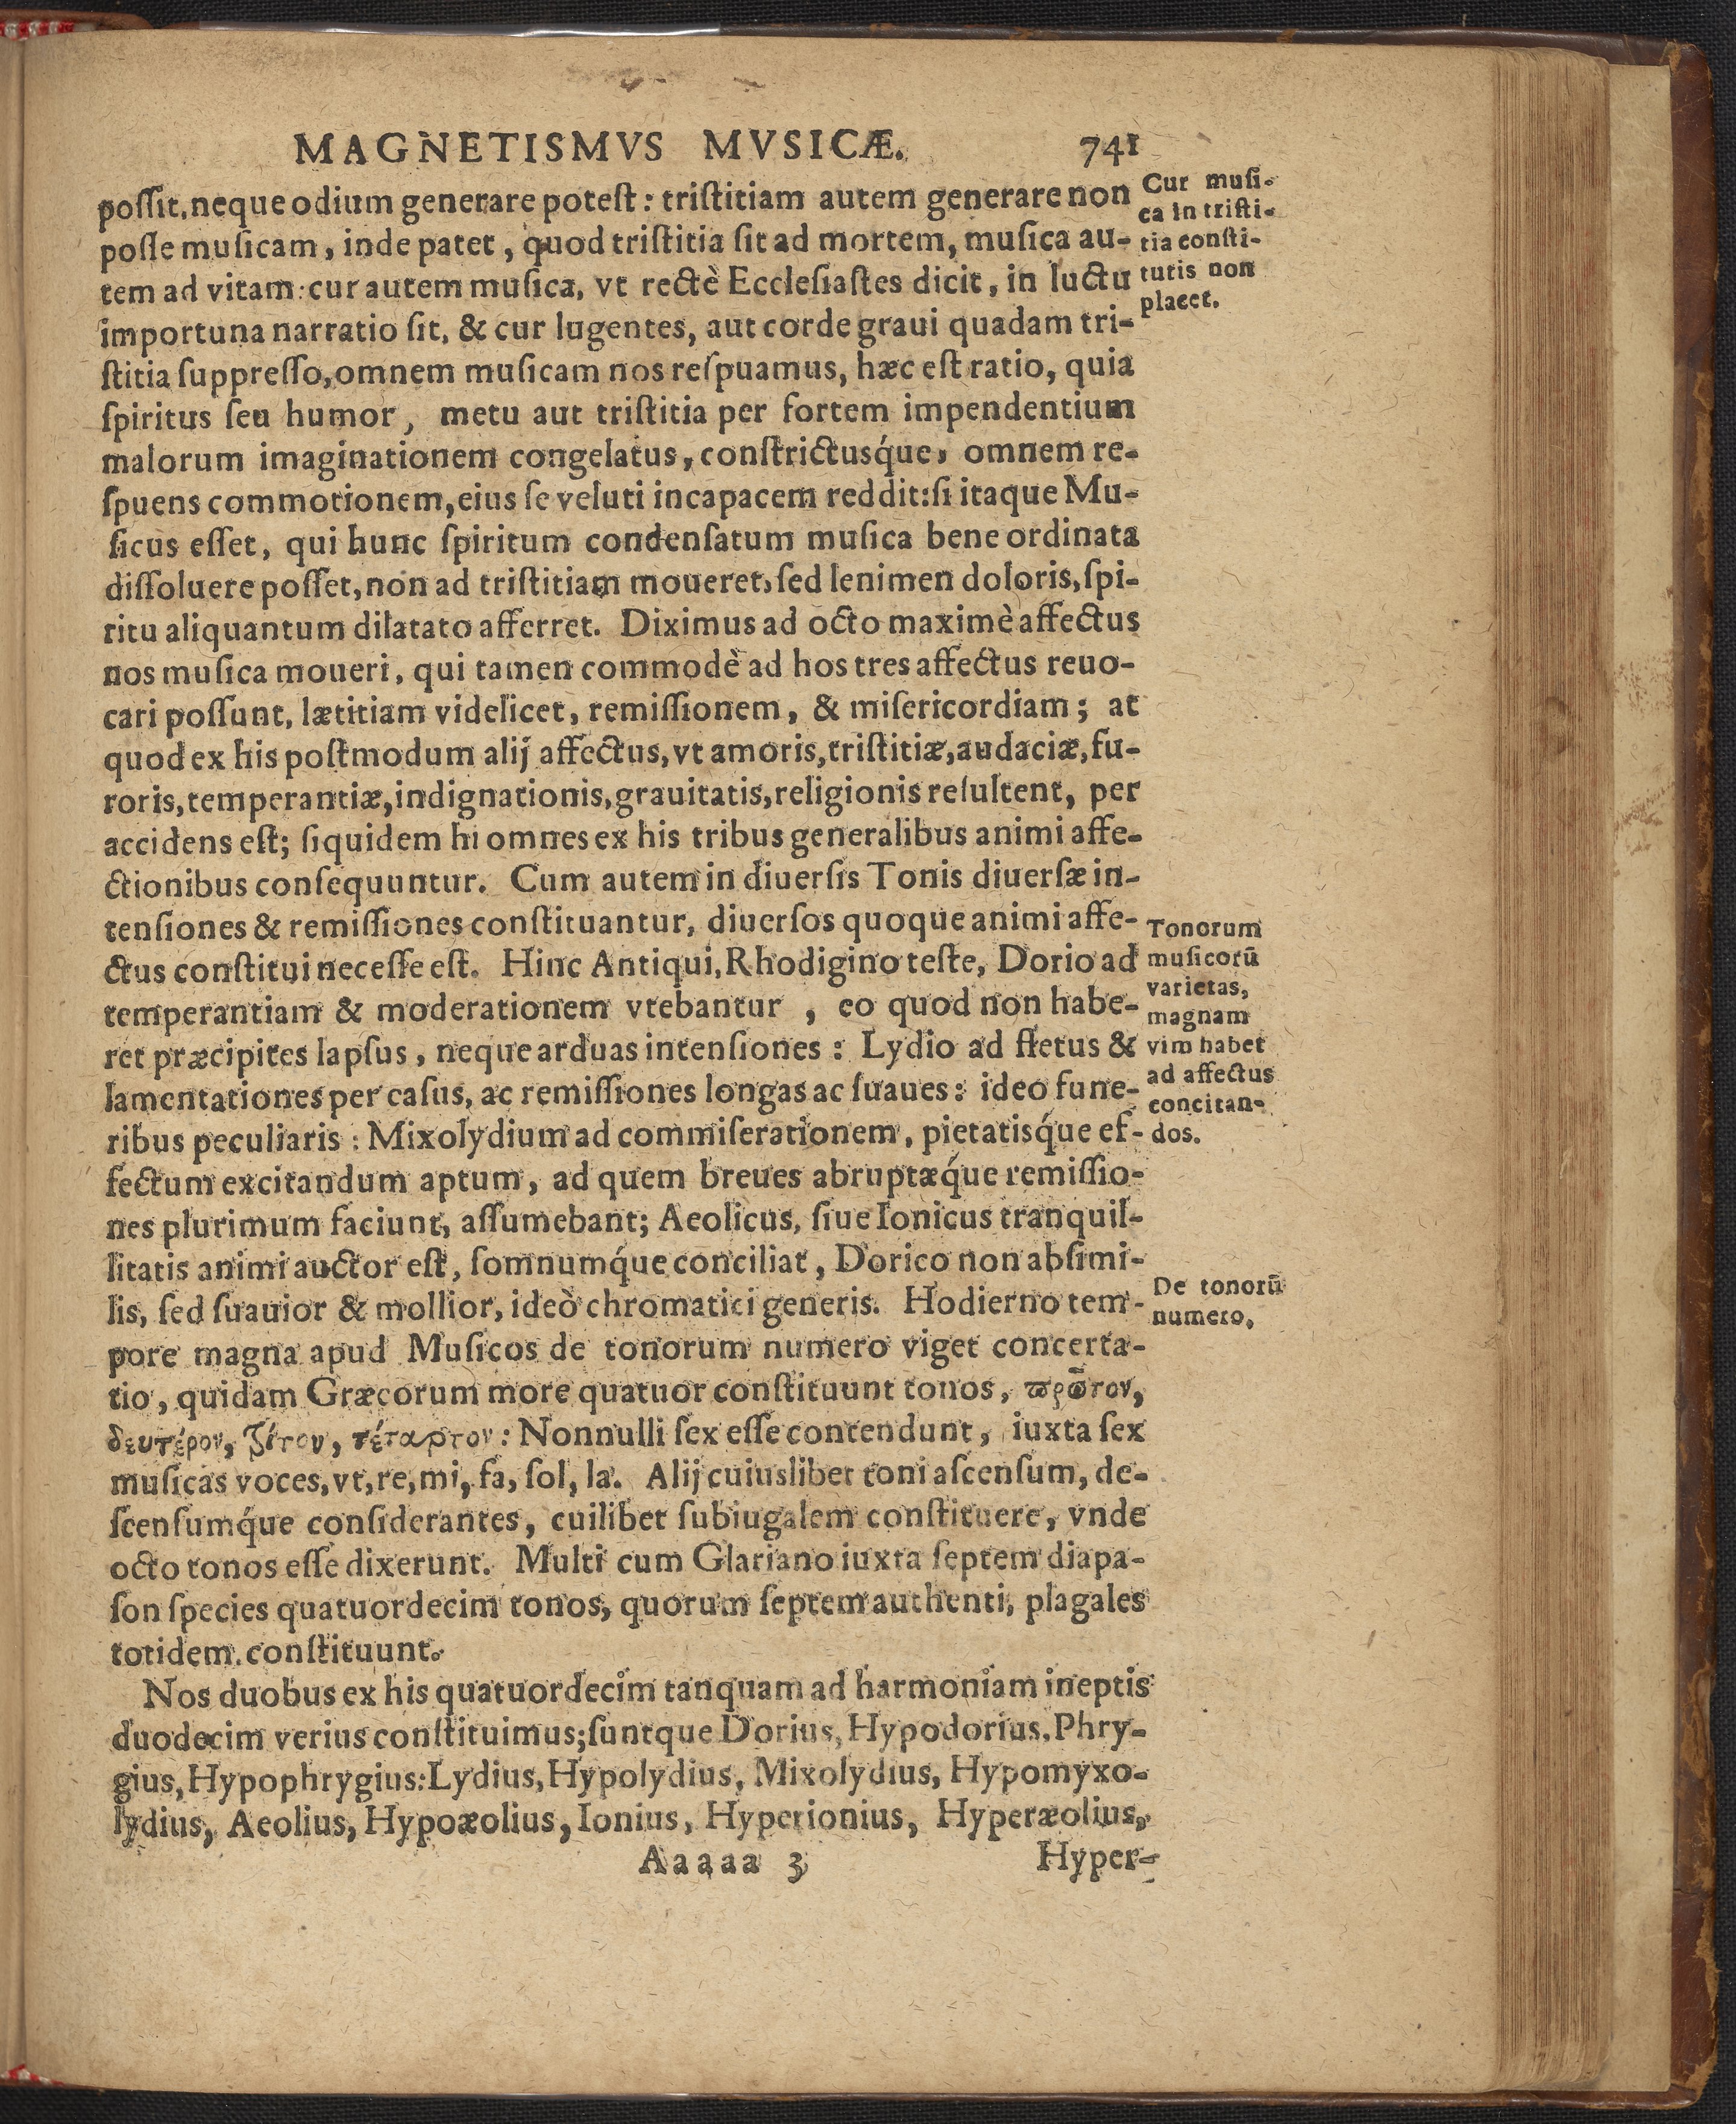 MAGNETISMVS MVSICÆ. 741
poſſit, neque odium generare poteſt: triſtitiam autem generare non
poſſe muſicam, inde patet, quod triſtitia ſit ad mortem, muſica au-
tem ad vitam: cur autem muſica, vt rectè Eccleſiaſtes dicit, in luctu
importuna narratio ſit, & cur lugentes, aut corde graui quadam tri-
ſtitia ſuppreſſo, omnem muſicam nos reſpuamus, hæc eſt ratio, quia
ſpiritus ſeu humor, metu aut triſtitia per fortem impendentium
malorum imaginationem congelatus, conſtrictusq́ue, omnem re-
ſpuens commotionem, eius ſe veluti incapacem reddit: ſi itaque Mu-
ſicus eſſet, qui hunc ſpiritum condenſatum muſica bene ordinata
diſſoluere poſſet, non ad triſtitiam moueret, ſed lenimen doloris, ſpi-
ritu aliquantum dilatato afferret. Diximus ad octo maximè affectus
nos muſica moueri, qui tamen commodè ad hos tres affectus reuo-
cari poſſunt, lætitiam videlicet, remiſſionem, & miſericordiam; at
quod ex his poſtmodum alij affectus, vt amoris, triſtitiæ, audaciæ, fu-
roris, temperantiæ, indignationis, grauitatis, religionis reſultent, per
accidens eſt; ſiquidem hi omnes ex his tribus generalibus animi affe-
ctionibus conſequuntur. Cum autem in diuerſis Tonis diuerſæ in-
tenſiones & remiſſiones conſtituantur, diuerſos quoque animi affe-
ctus conſtitui neceſſe eſt. Hinc Antiqui, Rhodigino teſte, Dorio ad
temperantiam & moderationem vtebantur, eo quod non habe-
ret præcipites lapſus, neque arduas intenſiones: Lydio ad fletus &
lamentationes per caſus, ac remiſſiones longas ac ſuaues: ideo fune-
ribus peculiaris: Mixolydium ad commiſerationem, pietatisq́ue ef-
fectum excitandum aptum, ad quem breues abruptæq́ue remiſſio-
nes plurimum faciunt, aſſumebant; Aeolicus, ſiue Ionicus tranquil-
litatis animi auctor eſt, ſomnumq́ue conciliat, Dorico non abſimi-
lis, ſed ſuauior & mollior, ideò chromatici generis. Hodierno tem-
pore magna apud Muſicos de tonorum numero viget concerta-
tio, quidam Græcorum more quatuor conſtituunt tonos, ϖρῶτον,
δευτέρον, τρίτον, τέταρτον: Nonnulli ſex eſſe contendunt, iuxta ſex
muſicas voces, vt, re, mi, fa, ſol, la. Alij cuiuslibet toni aſcenſum, de-
ſcenſumq́ue conſiderantes, cuilibet ſubiugalem conſtituere, vnde
octo tonos eſſe dixerunt. Multi cum Glariano iuxta ſeptem diapa-
ſon ſpecies quatuordecim tonos, quorum ſeptem authenti, plagales
totidem conſtituunt.
Nos duobus ex his quatuordecim tanquam ad harmoniam ineptis
duodecim verius conſtituimus; ſuntque Dorius, Hypodorius, Phry-
gius, Hypophrygius: Lydius, Hypolydius, Mixolydius, Hypomyxo-
lydius, Aeolius, Hypoæolius, Ionius, Hyperionius, Hyperæolius,
Aaaaa 3 Hyper-
Cur muſi-
ca in triſti-
tia conſti-
tutis non
placet.
Tonorum
muſicorū
varietas,
magnam
vim habet
ad affectus
concitan-
dos.
De tonorū
numero.